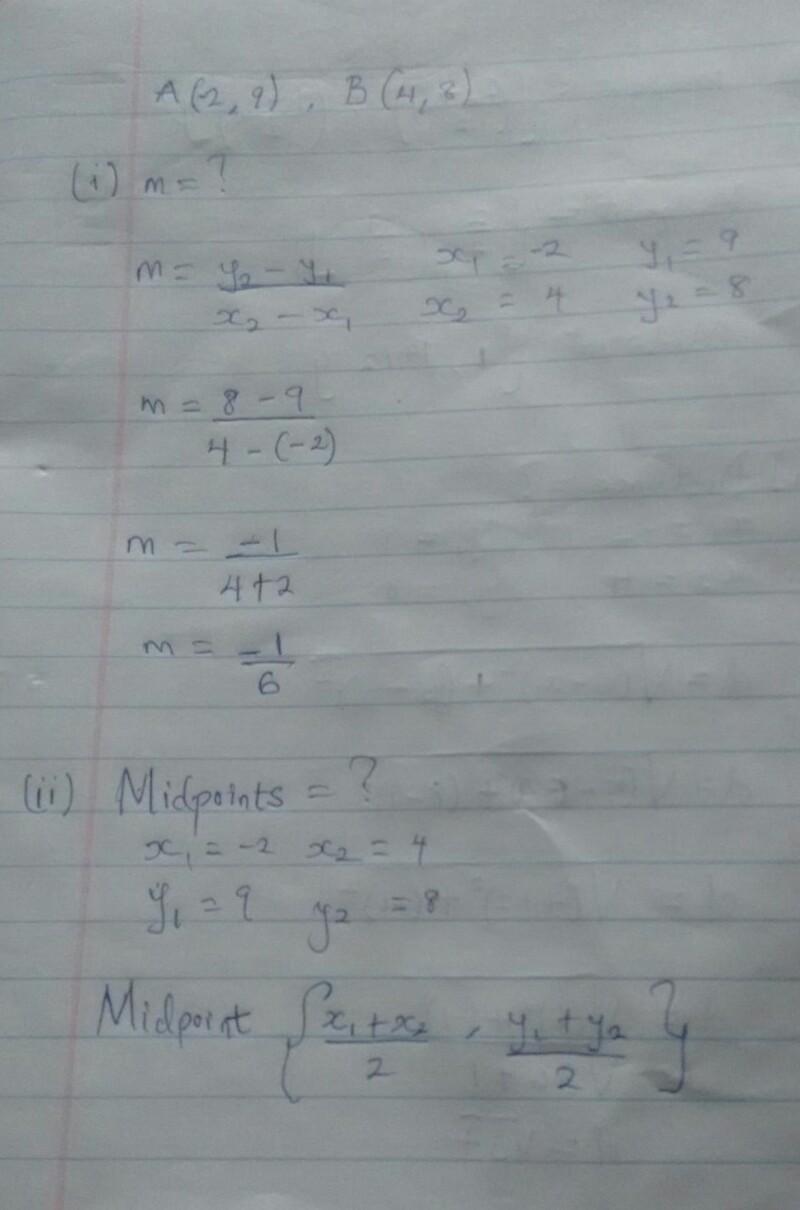 A(-2, 9) , B(4, 8)
(i) m = ?
m = y₂ - y₁ / x₂ - x₁   x₁ = -2   y₁ = 9
x₂ = 4   y₂ = 8
m = 8 - 9 / 4 - (-2)
m = -1 / 4+2
m = -1 / 6
(ii) Midpoints = ?
x₁ = -2   x₂ = 4
y₁ = 9   y₂ = 8
Midpoint { x₁ + x₂ / 2 , y₁ + y₂ / 2 }